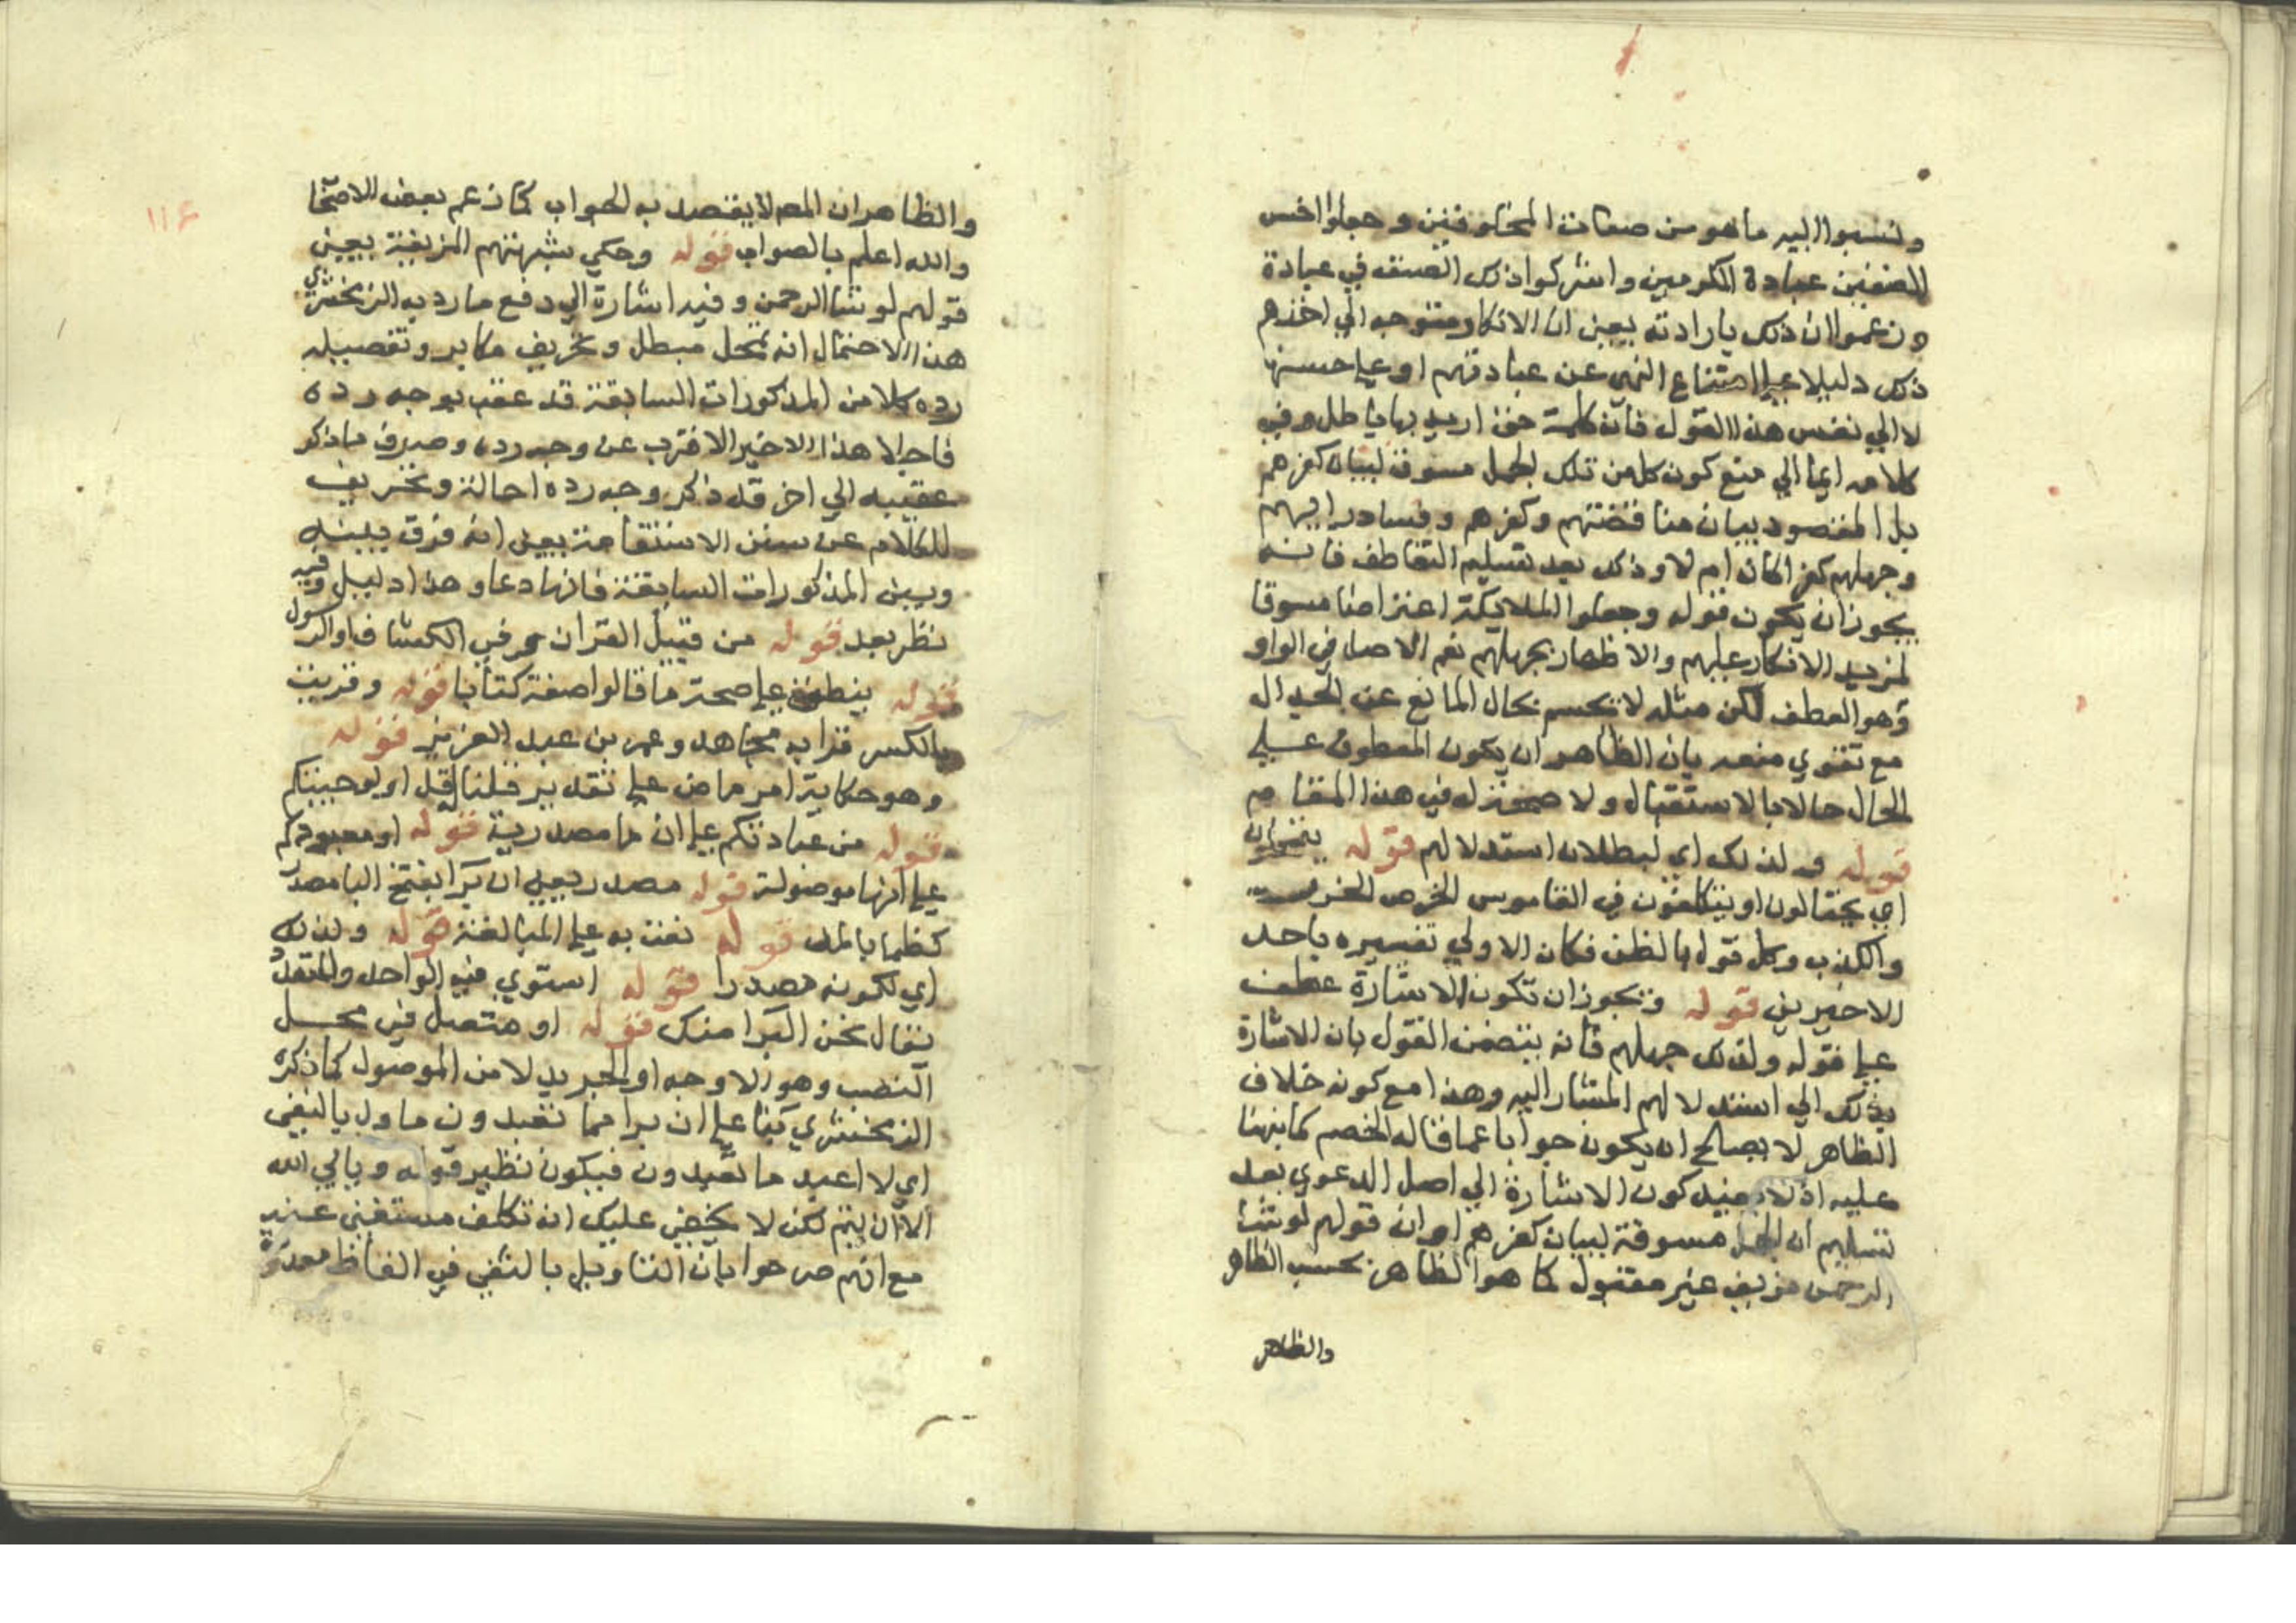 ونسبوا اليه ما هو من صفات المخلوقين وجعلوا اخس
الصنفين عبادة المكرمين واشركوا ذلك الصنف في عبادة
وزعموا ان ذلك بارادته يعني ان الانكار متوجه الي اخذهم
ذلك دليلا علي امتناع النهي عن عبادتهم او علي حسنها
لا الي نفس هذا القول فانه كلمة حق اريد بها باطل وفي
كلامه ايما الي منع كون كل من تلك الجمل مسوق لبيان كفرهم
بل المقصود بيان مناقضتهم وكفرهم وفساد رايهم
وجهلهم كفرا كان ام لا وذلك بعد تسليم التعاطف فانه
يجوز ان يكون قوله وجعلوا الملايكة اعتراضا مسوقا
لمزيد الانكار عليهم والاظهار بجهلهم نعم الاصل في الواو
وهو العطف لكن مثله لا يحسم بحال المانع عن الجدال
مع تقوي منعه بان الظاهر ان يكون المعطوف علي
الحال حالا بالاستقبال ولا في هذا المقام
قوله ولذلك اي لبطلان استدلالهم قوله
اي يحتالون او يتكلفون في القاموس الخرص الحزر
والكذب وكل قول بالظن فكان الاولي تفسيره باحد
الاخيرين قوله ويجوز ان تكون الاشارة عطف
علي قوله ولذلك جهلهم فانه يتضمن القول بان الاشارة
بذلك الي استدلالهم المشار اليه وهذا مع كونه خلاف
الظاهر لا يصلح ان يكون جوابا عما قاله الخصم كما نبهنا
عليه اذ لا يفيد كون الاشارة الي اصل الدعوي بعد
تسليم ان الجمل مسوقة لبيان كفرهم وان قولهم لو شا
الرحمن مزيف غير مقبول كما هو الظاهر بحسب الظاهر
والظاهر
١١٤
والظاهر ان المص لا يقصد به الجواب كما زعم بعض
والله اعلم بالصواب قوله وحكي شبهتهم المزيفة يعني
قولهم لو شا الرحمن وفيه اشارة الي دفع ما رد به الزمخشري
هذا الاحتمال انه تمحل مبطل وتحريف مكابر وتفصيله
رده كلا من المذكورات السابقة قد عقب بوجه رده
هذا الاخير الاقرب عن وجه رده وصرف ما ذكر
عقيبه الي اخر قد ذكر وجه رده احالة وتحريف
للكلام عن سنن الاستقامة يعني انه فرق بينه
وبين المذكورات السابقة فانها دعاو وهذا دليل وفيه
نظر بعد قوله من قبل القران وفي الكشاف او الرسول
قوله ينطق علي صحة ما قالوا صفة كتابا قوله وقريت
بالكسر قرا به مجاهد وعمر بن عبد العزيز قوله
وهو حكاية امر ماض علي تقدير فقلنا قل اولو جيتكم
قوله من عبادتكم علي ان ما مصدرية قوله او معبودكم
علي انها موصولة قوله مصدر يعني ان برا بفتح البا مصدر
كظما بالمد قوله نعت به علي المبالغة قوله ولذلك
اي لكونه مصدرا قوله استوي فيه الواحد والمتعدد
يقال نحن البرا منك قوله او متصل في محل
النصب وهو الاوجه او الجر بدلا من الموصول كما ذكره
الزمخشري بنا علي ان برا مما تعبدون ماول بالنفي
اي لا اعبد ما تعبدون فيكون نظير قوله ويابي الله
الا ان يتم لكن لا يخفي عليك ان تكلف مستغني عنه
مع انهم صرحوا بان التاويل بالنفي في الفاظ معدودة